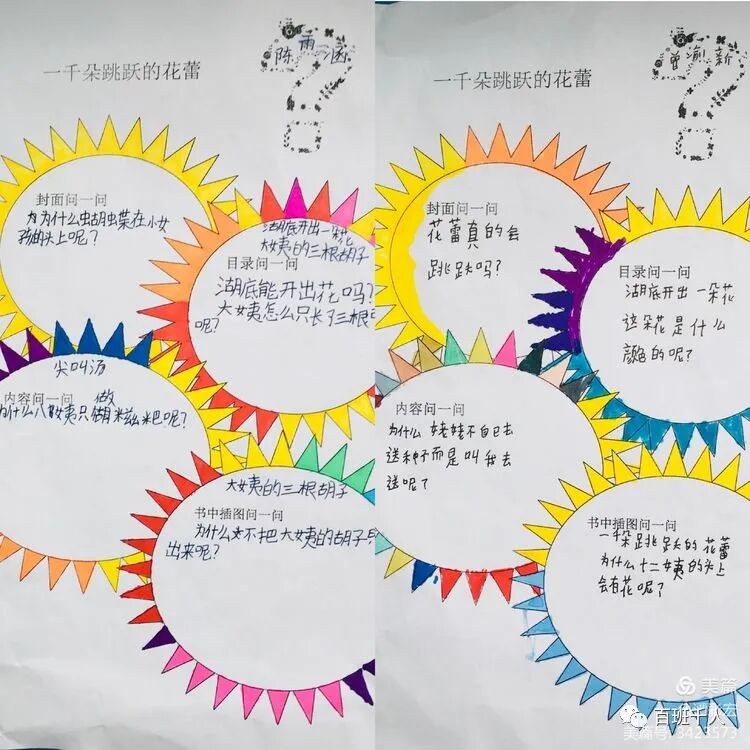 一千朵跳跃的花蕾
陈雨涵
封面问一问
为为什么蝴蝶在小女
孩的头上呢?
湖底开出一朵花
大姨的三根胡子
目录问一问
湖底能开出花吗?
大姨怎么只长了三根
呢?
尖叫汤
内容问一问
做
为什么八姨只做糍粑呢?
大姨的三根胡子
书中插图问一问
为什么不把大姨的胡子
出来呢?
一千朵跳跃的花蕾
曾渝新
封面问一问
花蕾真的会
跳跃吗?
目录问一问
湖底开出一朵花
这朵花是什么
颜色的呢?
内容问一问
为什么姥姥不自己去
送种子而是叫我去
送呢?
书中插图问一问
一朵跳跃的花蕾
为什么十二姨的头上
会有花呢?
美篇
百班千人
美篇号 3423573